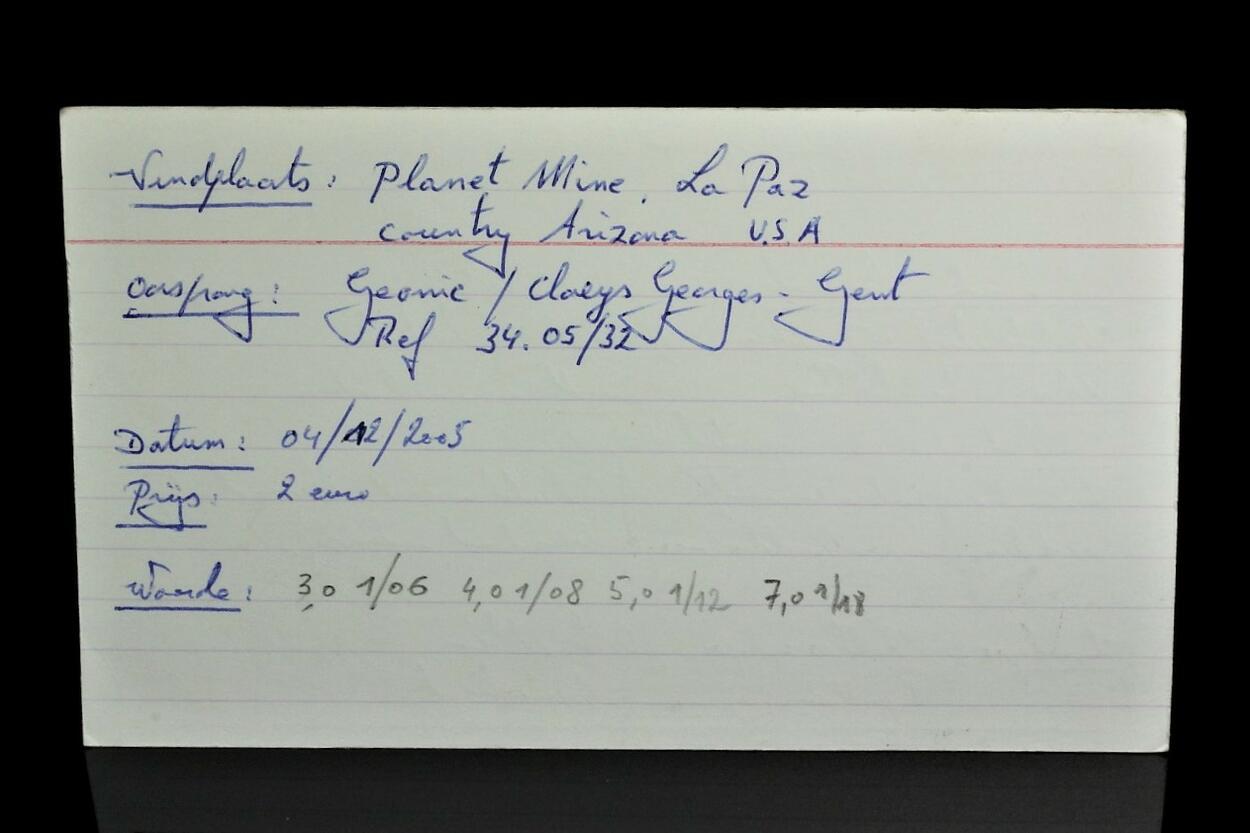 Vindplaats: Planet Mine, La Paz
country Arizona U.S.A
Oorsprong: Geonic / Claeys Georges - Gent
Ref 34.05/32
Datum: 04/12/2005
Prijs: 2 euro
Waarde: 3,0 1/06 4,0 1/08 5,0 1/12 7,0 1/18